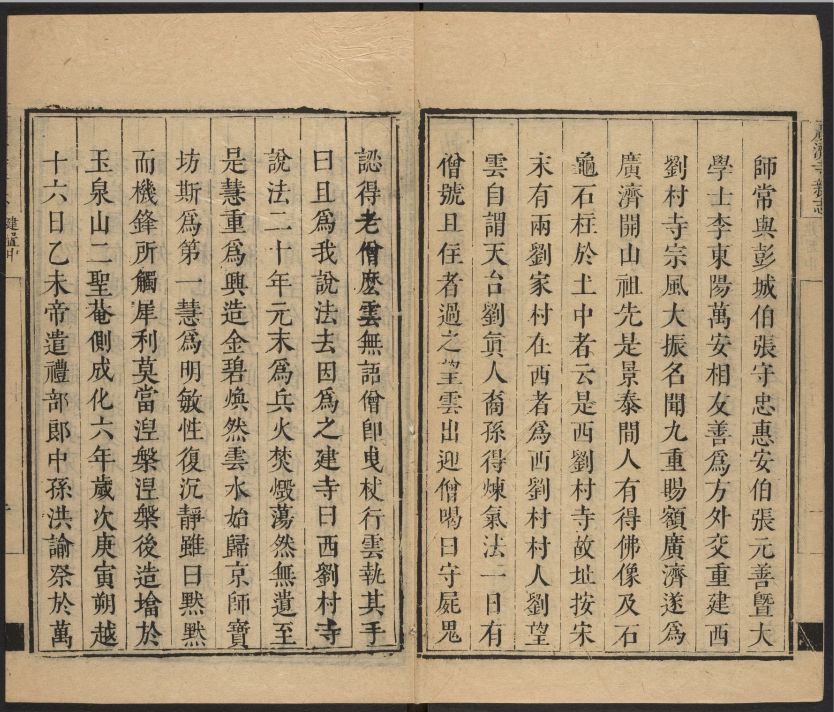 廣濟寺新志
師常與彭城伯張守忠惠安伯張元善暨大
學士李東陽萬安相友善爲方外交重建西
劉村寺宗風大振名聞九重賜額廣濟遂爲
廣濟開山祖先是景泰間人有得佛像及石
龜石柱於土中者云是西劉村寺故址按宋
末有兩劉家村在西者爲西劉村村人劉望
雲自謂天台劉眞人裔孫得煉氣法一日有
僧號且住者過之望雲出迎僧喝曰守屍鬼
認得老僧麽雲無語僧卽曳杖行雲執其手
曰且爲我說法去因爲之建寺曰西劉村寺
說法二十年元末爲兵火焚燬蕩然無遺至
是慧重爲興造金碧煥然雲水始歸京師寶
坊斯爲第一慧爲明敏性復沉靜雖日默默
而機鋒所觸犀利莫當涅槃涅槃後造墖於
玉泉山二聖菴側成化六年歲次庚寅朔越
十六日乙未帝遣禮部郎中孫洪諭祭於萬